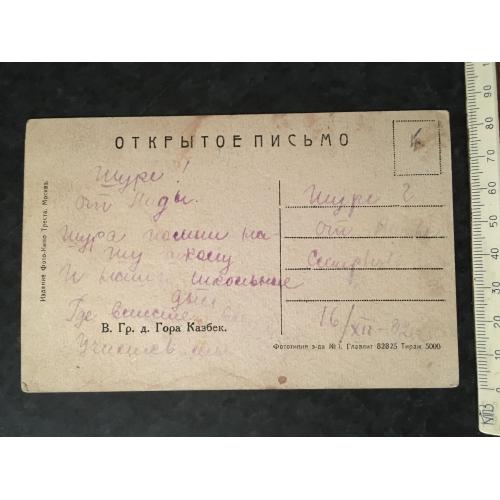 ОТКРЫТОЕ ПИСЬМО
Издание Фото-Кино Треста. Москва.
Шуре!
от Лиды.
Шура помни на-
шу школу
И наши школьные
дни
Где вместе
Учились мы
В. Гр. д. Гора Казбек.
Шуре Г
от Л
16/XII-32
Фототипия э-да № 1. Главлит 82825 Тираж 5000